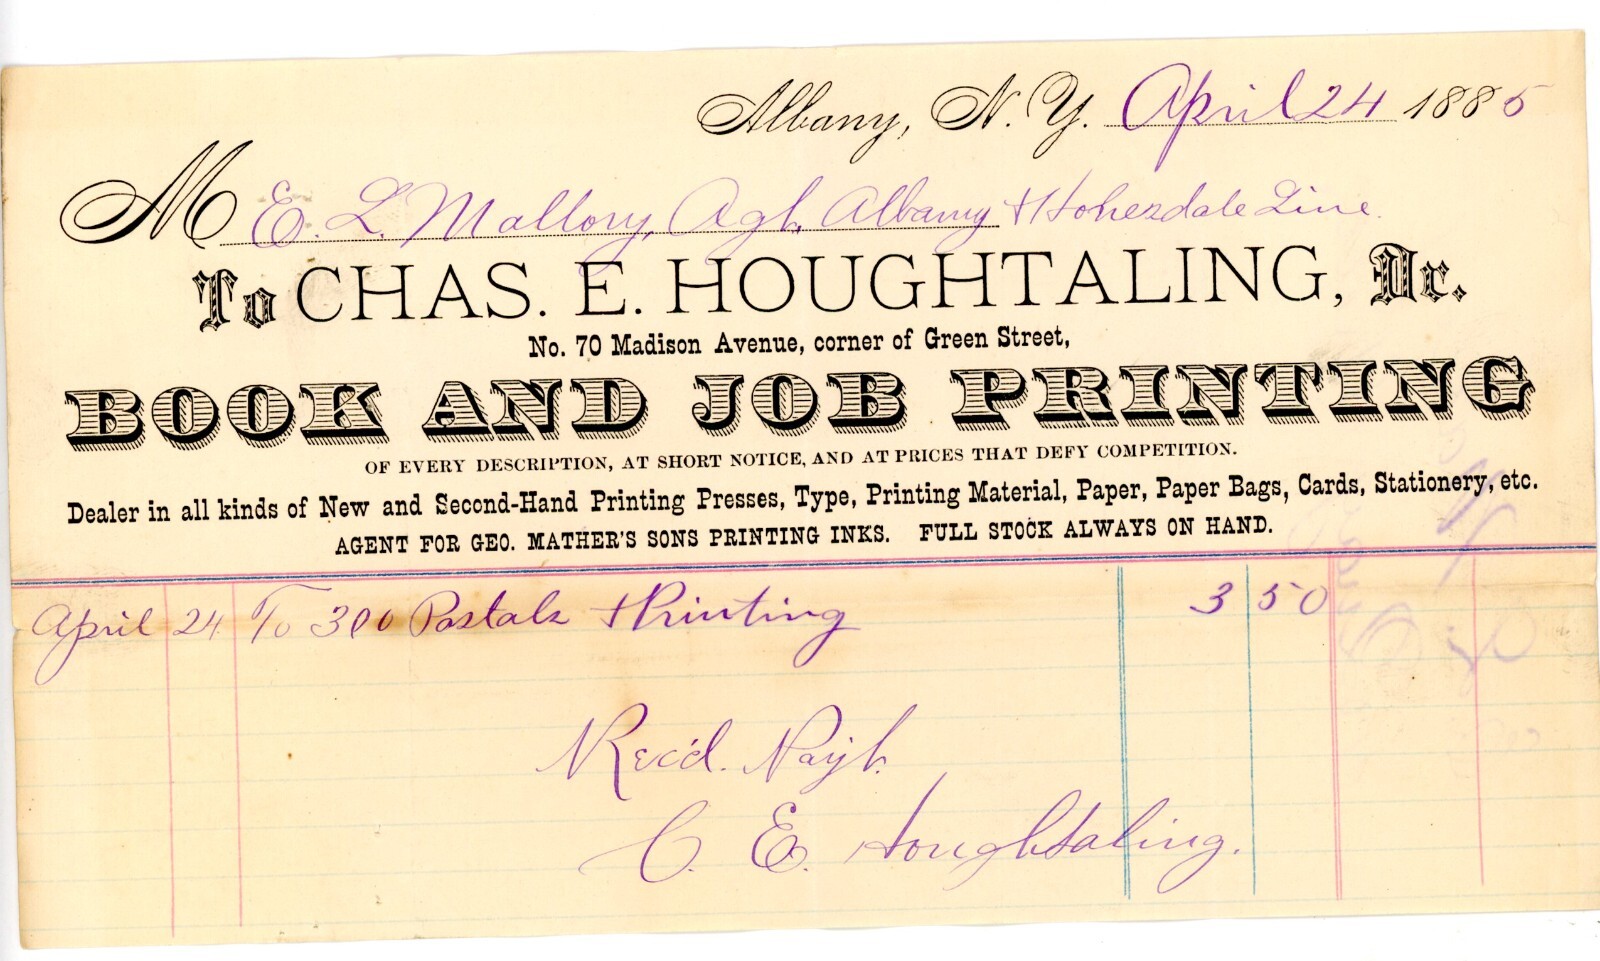 Albany, N. Y. April 24 1885
M E. L. Mallory, Agt. Albany & Honesdale Line.
To CHAS. E. HOUGHTALING, Dr.
No. 70 Madison Avenue, corner of Green Street,
BOOK AND JOB PRINTING
OF EVERY DESCRIPTION, AT SHORT NOTICE, AND AT PRICES THAT DEFY COMPETITION.
Dealer in all kinds of New and Second-Hand Printing Presses, Type, Printing Material, Paper, Paper Bags, Cards, Stationery, etc.
AGENT FOR GEO. MATHER'S SONS PRINTING INKS. FULL STOCK ALWAYS ON HAND.
April 24 To 300 Postals & Printing 3 50
Rec'd. Payt.
C. E. Houghtaling.